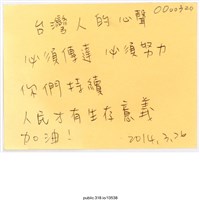 0000320
台灣人的心聲
必須傳達 必須努力
你們持續
人民才有生存意義
加油！ 2014.3.26
public.318.io/10538